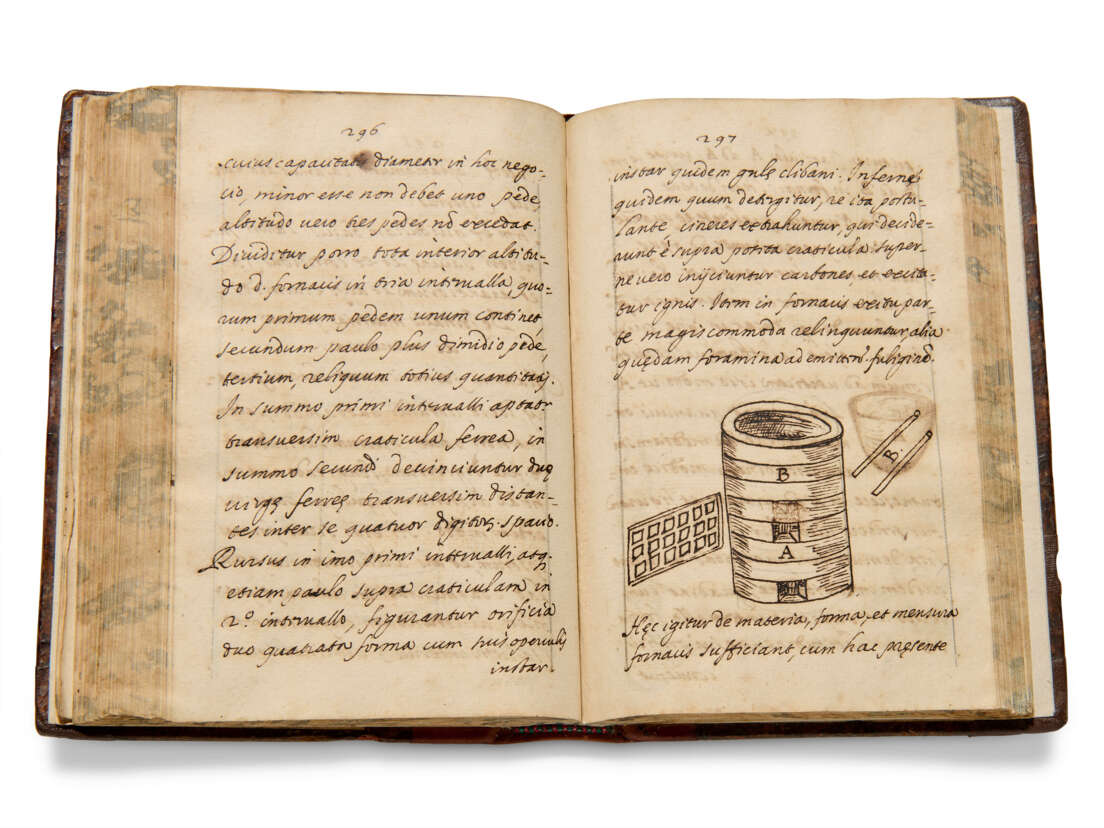 296
cuius capacitatis diameter in hoc nego-
cio, minor esse non debet uno pede,
altitudo vero tres pedes nō excedat.
Dividitur porro tota interior altitu-
do d. fornacis in tria intervalla, quo-
rum primum pedem unum continet,
secundum paulo plus dimidio pede,
tertium, reliquum totius quantitatis.
In summo primi intervalli aptatr
transversim craticula ferrea, in
summo secundi devinciuntur duę
virgę ferreę transversim distan-
tes inter se quatuor digitorū spatio.
Rursus in imo primi intervalli, atqꝫ
etiam paulo supra craticulam in
2.º intervallo, figurantur orificia
duo quadrata forma cum suis operculis
instar.
297
instar quidem clibani. Inferne
quidem quum detergitur, re ita postu-
lante, cineres extrahuntur, qui decide-
runt è supra posita craticula. super-
ne vero inijciuntur carbones, et excita-
tur ignis. Itrm in fornacis par-
te magis commoda relinquuntur alia
quędam foramina ad emittend. fuliginē.
B
A
B.
Hęc igitur de materia, forma, et mensura
fornacis sufficiant, cum hac pręsente